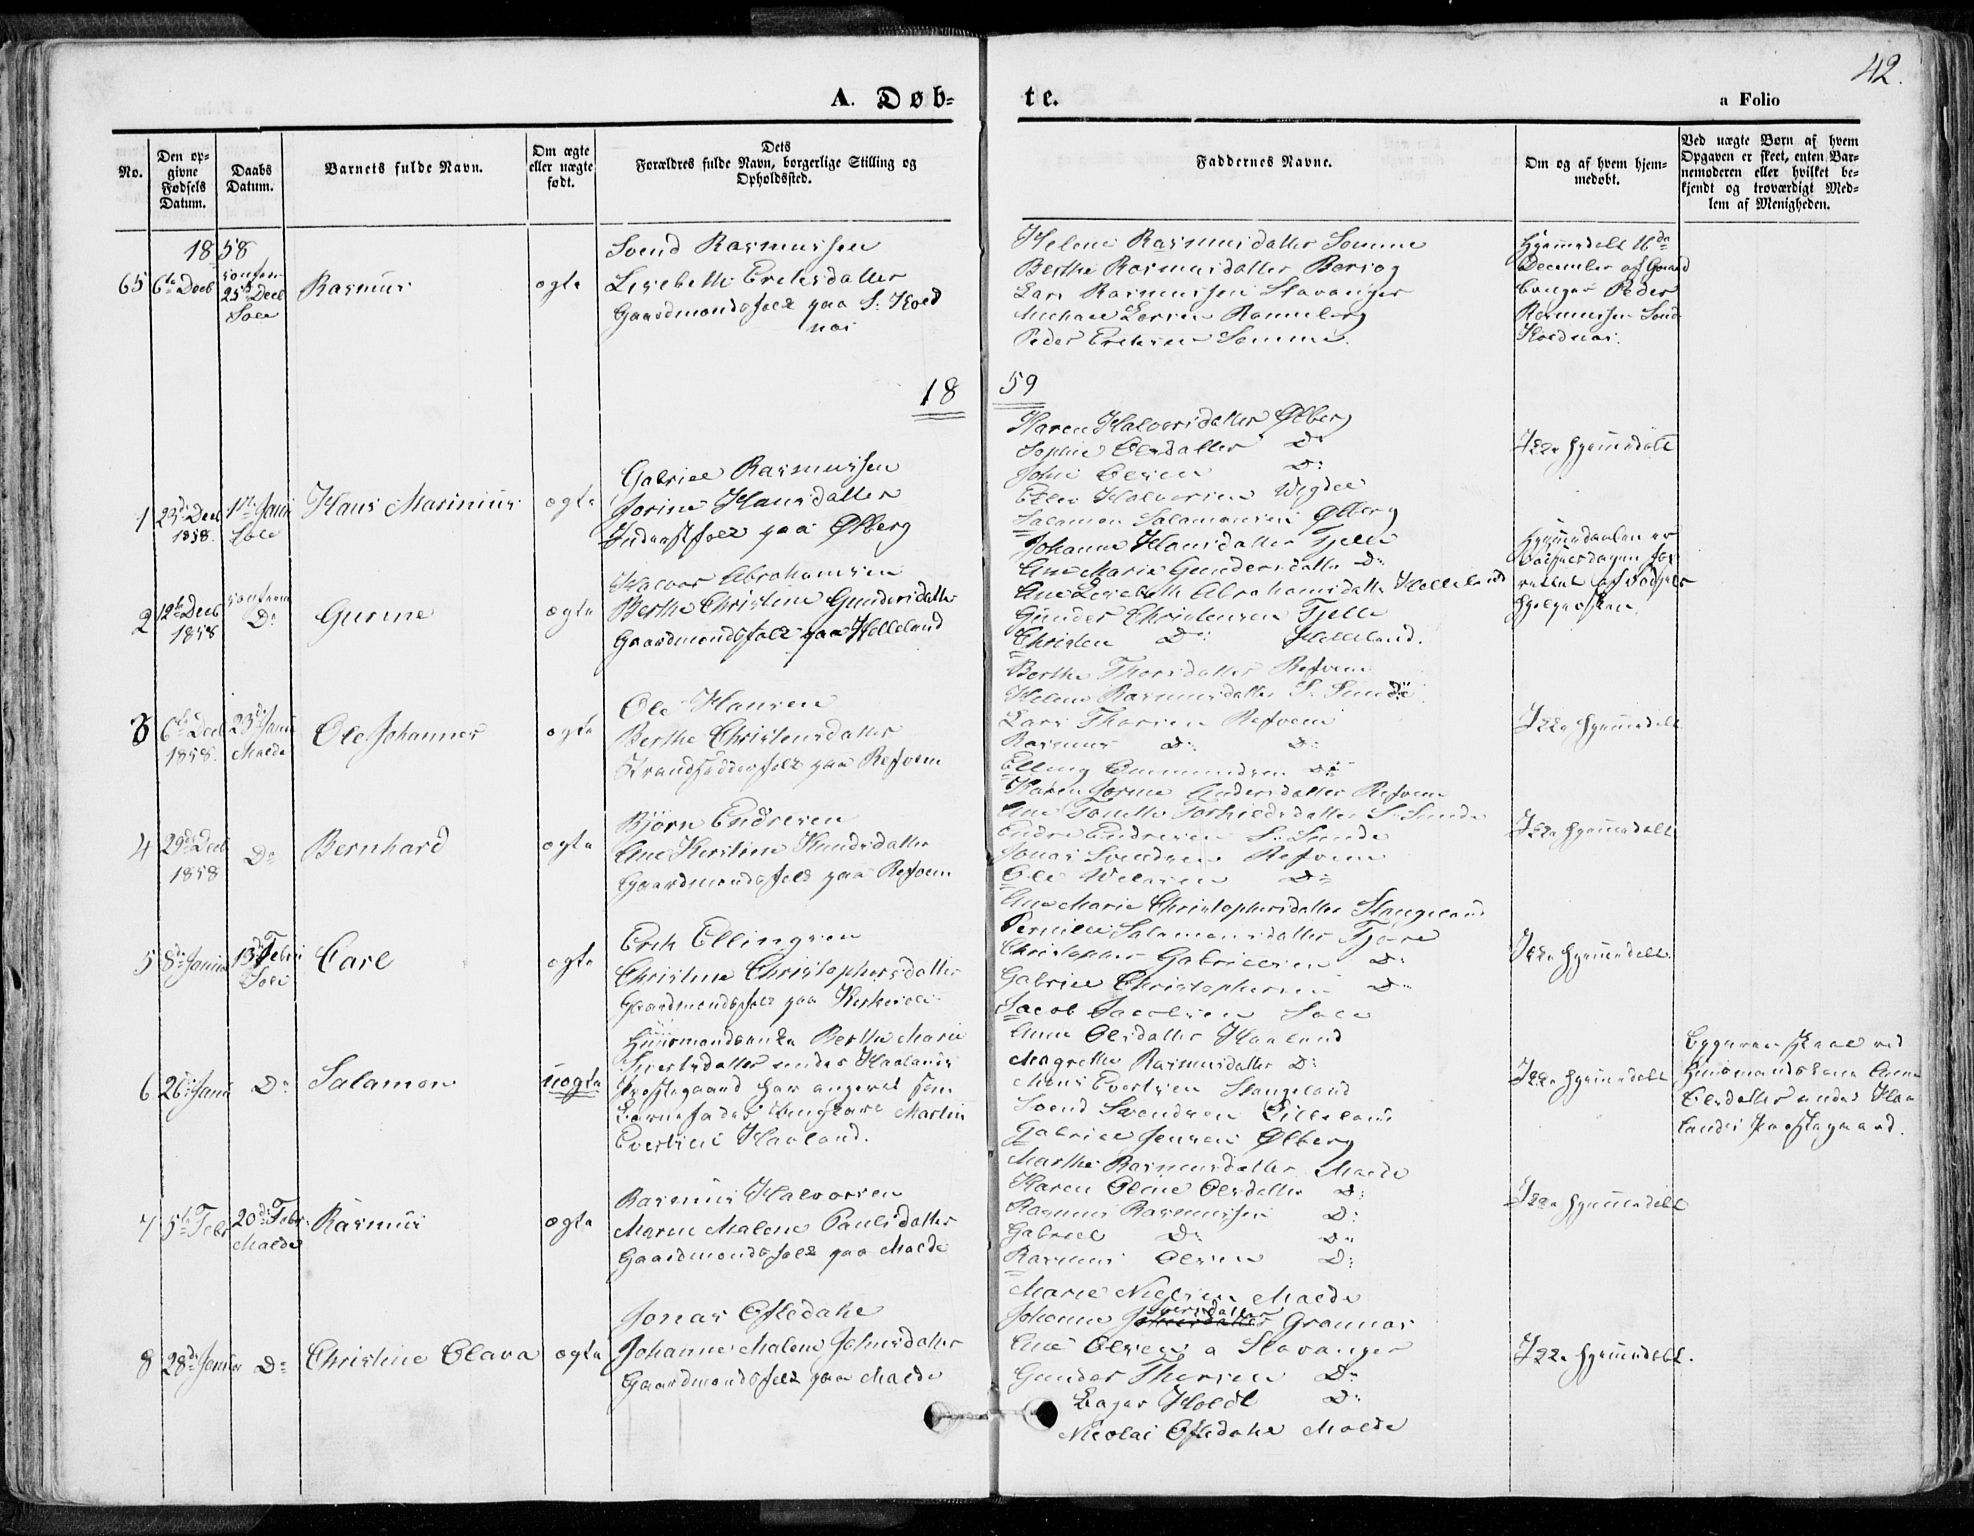 42.
A. Døb-
te.
a Folio
No.
Den op-
givne
Fødsels
Datum.
Daabs
Datum.
Barnets fulde Navn.
Om ægte
eller uægte
født.
Dets
Forældres fulde Navn, borgerlige Stilling og
Opholdssted.
Faddernes Navne.
Om og af hvem hjem-
medøbt.
Ved uægte Børn af hvem
Opgaven er skeet, enten Bar-
nemoderen eller hvilket be-
kjendt og troværdigt Med-
lem af Menigheden.
1858
65 6te Decb
25de Decb
Sole
Rasmus
ægte
Svend Rasmussen
Lisebeth Eriksdatter
Gaardmandsfolk paa S: Kold
næs
Helene Rasmusdatter Sømme
Berthe Rasmusdatter
Lars Rasmussen Stavanger
Michael Larsen Rønneberg
Peder Eriksen Sømme.
Hjemmedøbt 16de
December af Gaard
bruger Peder
Rasmussen Sønd
Koldnæs.
1859
1 23de Decb
1858.
1ste Janu
Sole
Hans Marinius
ægte
Gabriel Rasmussen
Jorine Hansdatter
Inderstfolk paa Ølberg
Karen Halvorsdatter Ølberg
Sophie Olsdatter Do
John Olsen Do:
Halvorsen Wigdel
Salamon Salamonsen Ølberg
Ikke hjemmedøbt
2 12te Decb
1858
Do
Gurine
ægte
Halvor Abrahamsen
Berthe Christine Gundersdatter
Gaardmandsfolk paa Helleland
Johanne Hansdatter Tjelle
Ane Marie Gundersdatter Do
Ane Lisebeth Abrahamsdatter Helleland
Gunder Christensen Tjelle
Christen Do: Helleland.
Hjemmedaaben er
3 6te Decb
1858.
23de Janu
Malde
Ole Johannes
ægte
Ole Hansen
Berthe Christensdatter
Strandsidderfolk paa Refvem
Berthe Thorsdatter Refvem
Helene Rasmusdatter S. Sunde
Lars Thorsen Refvem
Rasmus Do: Do:
Elling Ommundsen Do
Ikke hjemmedøbt
4 29de Decb
1858
Do
Bernhard
ægte
Bjørn Endresen
Ane Kirstine Knudsdatter
Gaardmandsfolk paa Refvem
Karen Jorine Andersdatter Refvem
Ane Tonette Torkildsdatter S. Sunde
Endre Endresen S. Sunde
Jonas Svendsen Refvem
Ole Do
Ikke hjemmedøbt
5 8de Janua
13de Febr
Sole
Carl
ægte
Erik Ellingsen
Christine Christophersdatter
Gaardmandsfolk paa
Ane Marie Christophersdatter Stangeland
Pernille Salamonsdatter Tjøre
Christopher Gabrielsen Do:
Gabriel Christophersen Do
Jacob Jacobsen Sole
Ikke hjemmedøbt
6 26de Janu
Do
Salamon
uægte
Huusmandsenke Berthe Marie
Sivertsdatter under Haalands
Præstegaard har angivet som
Barnefader Ungkarl Martin
Evertsen Haaland.
Anne Olsdatter Haaland
Magrethe Rasmusdatter Do:
Mons Evertsen Stangeland
Svend Svendsen
Gabriel Jensen Ølberg
Ikke hjemmedøbt
Opgaven skeet ved
Huusmandskone Anne
Olsdatter under Haa
lands Præstegaard.
7 5te Febr
20de Febr
Malde
Rasmus
ægte
Rasmus Halvorsen
Maren Malene Paulsdatter
Gaardmandsfolk paa Malde
Marthe Rasmusdatter Malde
Karen Oline Olsdatter Do:
Rasmus Rasmussen Do:
Gabriel Do: Do:
Rasmus Olsen Do:
Ikke hjemmedøbt
8 28de Janua
Do
Christine Olava
ægte
Jonas Oftedahl
Johanne Malene Johnsdatter
Gaardmandsfolk paa Malde
Marie Nielsen Malde
Johanne Iversdatter Grannæs
Ane Olsen a Stavanger
Gunder Thorsen Do
Holdt Do:
Nicolai Oftedahl Malde
Ikke hjemmedøbt.